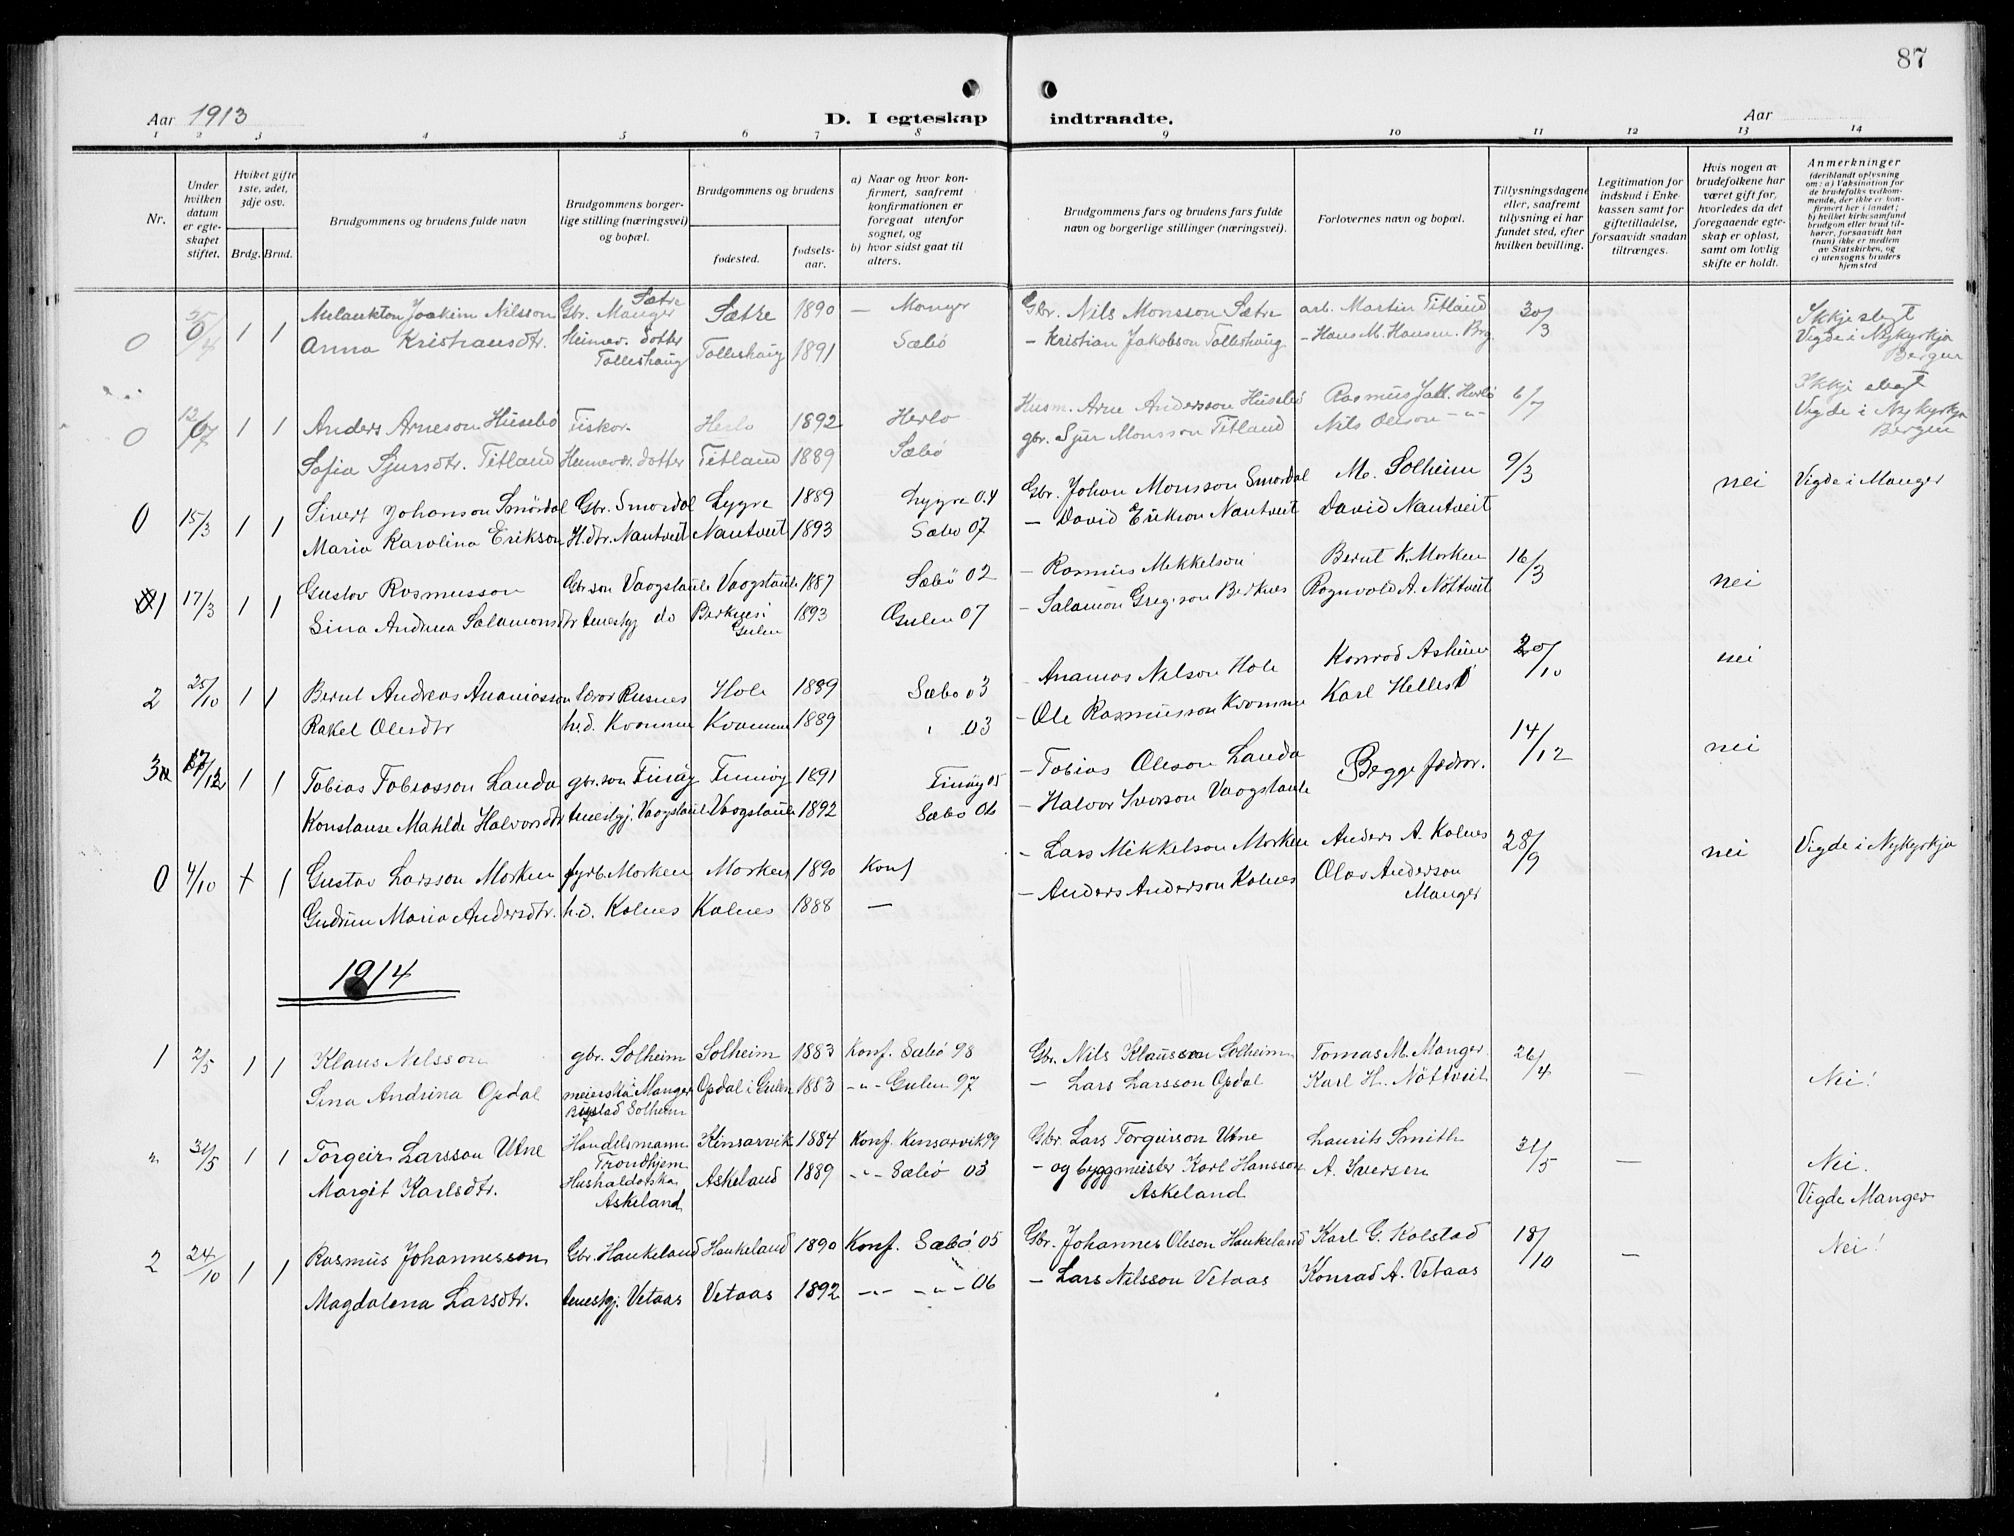 87
Aar 1913
D. I egteskap indtraadte.
Aar
1 2 3 4 5 6 7 8 9 10 11 12 13 14
Nr.
Under hvilken datum er egteskapet stiftet.
Hviket gifte 1ste, 2det, 3dje osv.
Brdg. Brud.
Brudgommens og brudens fulde navn
Brudgommens borgerlige stilling (næringsvei) og bopæl.
Brudgommens og brudens
fødested.
fødselsaar.
a) Naar og hvor konfirmert, saafremt konfirmationen er foregaat utenfor sognet, og
b) hvor sidst gaat til alters.
Brudgommens fars og brudens fars fulde navn og borgerlige stillinger (næringsvei).
Forlovernes navn og bopæl.
Tillysningsdagene eller, saafremt tillysning ei har fundet sted, efter hvilken bevilling.
Legitimation for indskud i Enkekassen samt for giftetilladelse, forsaavidt saadan tiltrænges.
Hvis nogen av brudefolkene har været gift før, hvorledes da det foregaaende egteskap er opløst, samt om lovlig skifte er holdt.
Anmerkninger
(deriblandt oplysning om: a) Vaksination for de brudefolks vedkommende, der ikke er konfirmert her i landet;
b) hvilket kirkesamfund brudgom eller brud tilhører, forsaavidt han (hun) ikke er medlem av Statskirken, og
c) utensogns bruders hjemsted
0 1 1 Melankton Joakim Nilsson Gbr. Manger Sætre Sætre 1890 — Manger Gbr. Nils Monsson Sætre arb. Martin Titland 30/3 Ikkje slegt
Anna Kristiansdtr. Heimev. dotter Tolleshaug Tolleshaug 1891 Sæbö – Kristian Jakobson Tolleshaug – Hans M. Hansen. Brg. Vigde i Nykyrkja Bergen
0 1 1 Anders Arneson Husebö Fiskar. Herlo 1892 Herlo Husm. Arne Andersson Husebö Rasmus Herlo 6/7 Ikkje slegt
Sofia Sjursdtr. Titland Heimevr. dotter Titland 1889 Sæbö gbr. Sjur Monsson Titland Nils Olsson –"– Vigde i Nykyrkja Bergen
0 15/3 1 1 Sivert Johanson Smördal Gbr. Smordal Lygre 1889 Lygre 04 Gbr. Johan Monsson Smordal M. Solheim 9/3 nei Vigde i Manger
Maria Karolina Erikson H.dtr. Nantveit Nantveit 1893 Sæbo 07 – David Erikson Nantveit David Nantveit
1 17/3 1 1 Gustav Rasmusson Gbr.son Vaagstaule Vaagstaule 1887 Sæbö 02 – Rasmus Mekkelson Bernt K. Morken 16/3 nei
Sina Andrea Salamonsdtr tenestgj do Berknes i Gulen 1893 Gulen 07 – Salamon Greg.son Berknes Rognvald A. Nöttveit
2 25/10 1 1 Bernt Andreas Ananiasson Hole 1889 Sæbo 03 – Ananias Nelson Hole Konrad Asheim 20/10 nei
Rakel Olesdtr h.d. Kvamme Kvamme 1889 " 03 – Ole Rasmusson Kvamme Karl Helles
3 17/12 1 1 Tobias Tobiasson Landa gbr.son Finnöy 1891 05 – Tobias Oleson Landa Begge fedrar. 14/12 nei
Konstanse Matilde Halvorsdtr tenestgj. Vaagstaule Vaagstaule 1892 Sæbö 06 – Halvor Iverson Vaagstaule
0 4/10 1 1 Gustav Larsson Morken fyrb. Morken Morken 1890 Konf – Lars Mikkelson Morken Anders A. Kalnes 28/9 nei Vigde i Nykyrkja
Gudrun Maria Andersdtr. h.d. Kalnes Kalnes 1888 — – Anders Anderson Kalnes Olav Anderson Manger
1914
1 2/5 1 1 Klaus Nelsson gbr. Solheim Solheim 1883 Konf. Sæbö 98 Gbr. Nils Klausson Solheim Tomas M. Manger 26/4 —
Sina Andrina Opdal meierska Manger Bustad Solheim Opdal i Gulen 1883 –"– Gulen 97 – Lars Larsson Opdal Karl H. Nöttveit Nei!
" 31/5 1 1 Torgeir Larsson Utne Handelsmann Trondhjem Kinsarvik 1884 Konf. Kinsarvik 99 Gbr. Lars Torgeirson Utne Laurits Smith 31/5 — Nei.
Margit Karlsdtr. Hushaldotska Askeland Askeland 1889 –"– Sæbö 03 – og byggmeister Karl Hansson Askeland A. Iversen Vigde Manger
2 24/10 1 1 Rasmus Johannesson Gbr. Haukeland Haukeland 1890 Konf. Sæbö 05 Gbr. Johannes Oleson Haukeland Karl G. Kolstad 18/10 — Nei!
Magdalena Larsdtr. tenestgj. Vetaas Vetaas 1892 –"– –"– 06 – Lars Nilsson Vetaas Konrad A. Vetaas